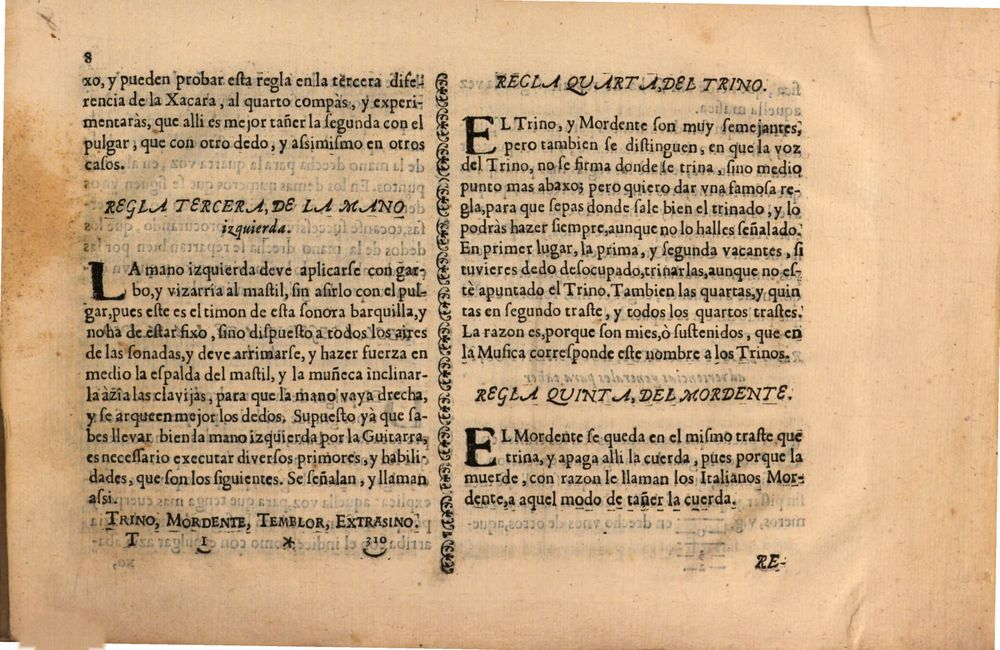 8
xo, y pueden probar esta regla en la tercera dife-
rencia de la Xacara, al quarto compàs, y experi-
mentaràs, que alli es mejor tañer la segunda con el
pulgar, que con otro dedo, y assimismo en otros
casos.
REGLA TERCERA, DE LA MANO
izquierda.
LA mano izquierda deve aplicarse con gar-
bo, y vizarria al mastil, sin asirlo con el pul-
gar, pues este es el timon de esta sonora barquilla, y
no ha de estar fixo, sino dispuesto a todos los aires
de las sonadas, y deve arrimarse, y hazer fuerza en
medio la espalda del mastil, y la muñeca inclinar-
la àzia las clavijas, para que la mano vaya drecha,
y se arqueen mejor los dedos. Supuesto yà que sa-
bes llevar bien la mano izquierda por la Guitarra,
es necessario executar diversos primores, y habili-
dades, que son los siguientes. Se señalan, y llaman
assi.
TRINO, MORDENTE, TEMBLOR, EXTRASINO.
T 1 * 310
REGLA QUARTA, DEL TRINO.
EL Trino, y Mordente son muy semejantes,
pero tambien se distinguen, en que la voz
del Trino, no se firma donde se trina, sino medio
punto mas abaxo; pero quiero dar vna famosa re-
gla, para que sepas donde sale bien el trinado, y lo
podràs hazer siempre, aunque no lo halles señalado.
En primer lugar, la prima, y segunda vacantes, si
tuvieres dedo desocupado, trinarlas, aunque no es-
tè apuntado el Trino. Tambien las quartas, y quin
tas en segundo traste, y todos los quartos trastes.
La razon es, porque son mies, ò sustenidos, que en
la Musica corresponde este nombre a los Trinos.
REGLA QUINTA, DEL MORDENTE.
EL Mordente se queda en el mismo traste que
trina, y apaga alli la cuerda, pues porque la
muerde, con razon le llaman los Italianos Mor-
dente, a aquel modo de tañer la cuerda.
RE-